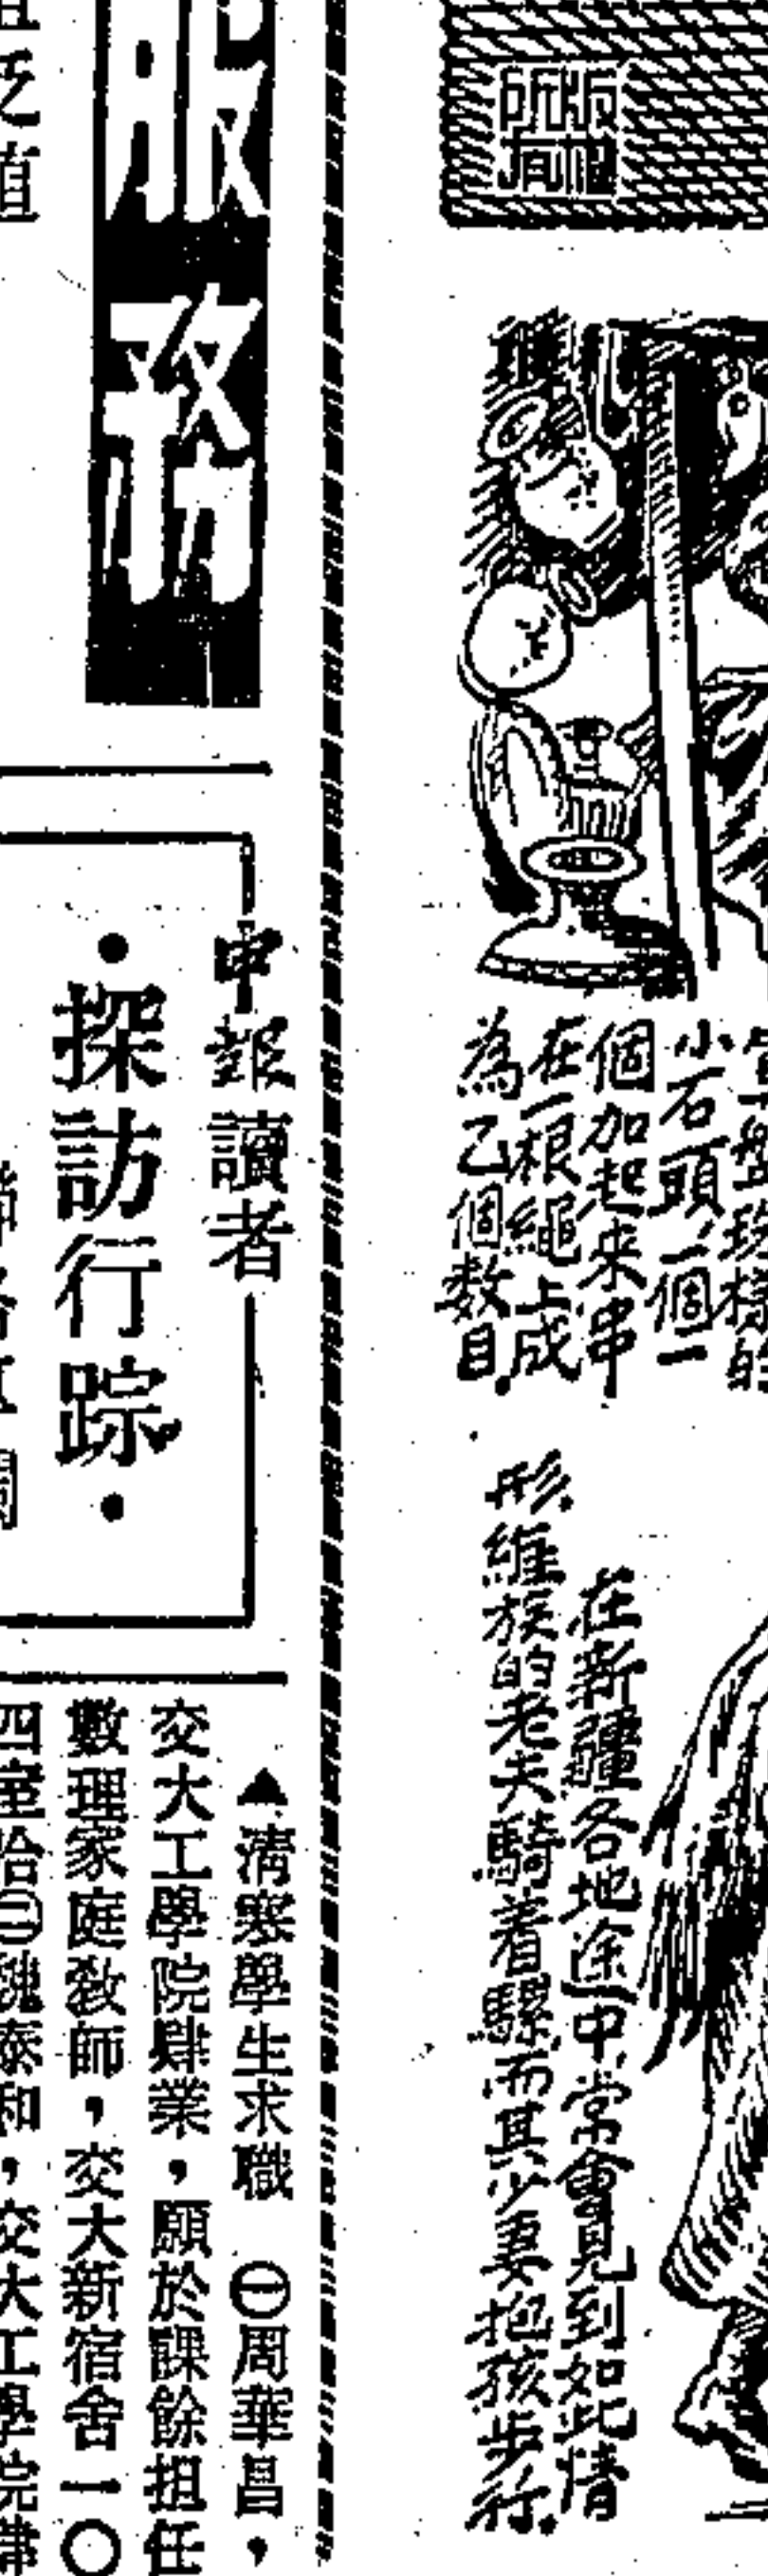 版權
所有
小石頭,一個一
個加起来串
在一根繩上成
為乙個数目.
在新疆各地途中,常會見到如此情
形.維族的老夫騎着騾,而其少妻抱孩步行.
服務
申報讀者
•探訪行踪•
▲清寒學生求職 ㊀周華昌,
交大工學院肄業,願於課餘担任
數理家庭教師,交大新宿舍一〇